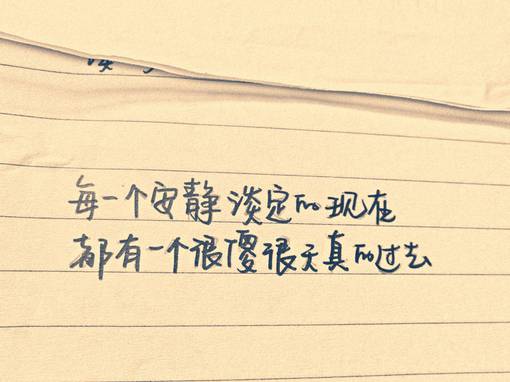 每一个安静淡定的现在
都有一个很傻很天真的过去